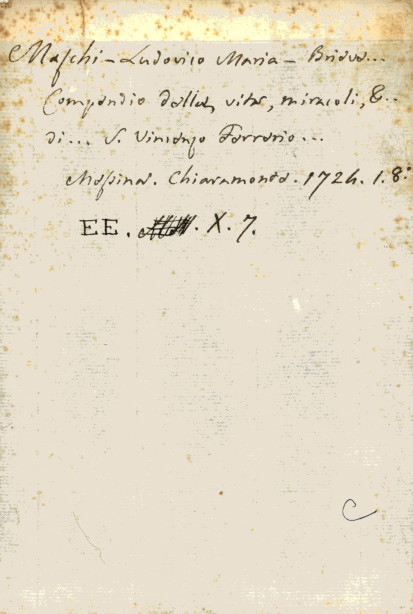 Maschi - Ludovico Maria - Brieve...
Compendio della vita, miracoli, &..
di... S. Vincenzo Ferrerio...
Messina. Chiaramonte. 1726. 1. 8:
EE. X. 7.
C